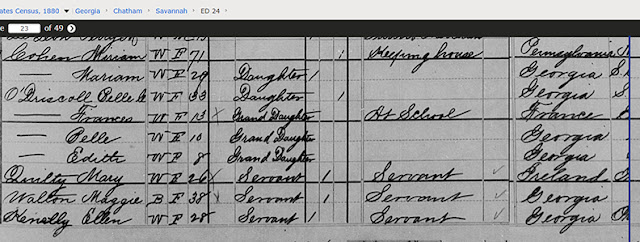 ates Census, 1880 Georgia Chatham Savannah ED 24
e 23 of 49
Cohen Miriam W F 71 1 Keeping house Pennsylvania
— Mariam W F 29 Daughter 1 Georgia S
O'Driscoll Belle W F 33 Daughter 1 Georgia S
— Frances W F 13 Grand Daughter At School France
— Belle W F 10 Grand Daughter Georgia
— Edith W F 8 Grand Daughter Georgia
Mary W F 26 Servant 1 Servant Ireland
Walton Maggie B F 38 Servant 1 Servant Georgia
Ellen W F 28 Servant 1 Servant Georgia